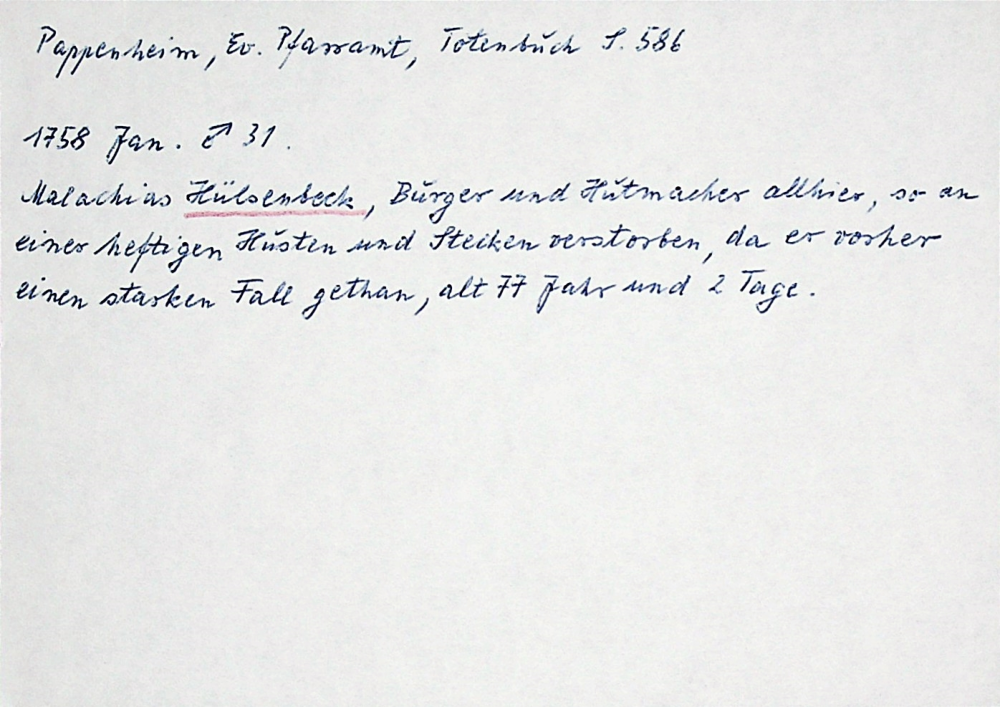 Pappenheim, Ev. Pfarramt, Totenbuch S. 586
1758 Jan. ♂ 31.
Malachias Hülsenbeck, Bürger und Hutmacher allhier, so an
einer heftigen Husten und Stecken verstorben, da er vorher
einen starken Fall gethan, alt 77 Jahr und 2 Tage.